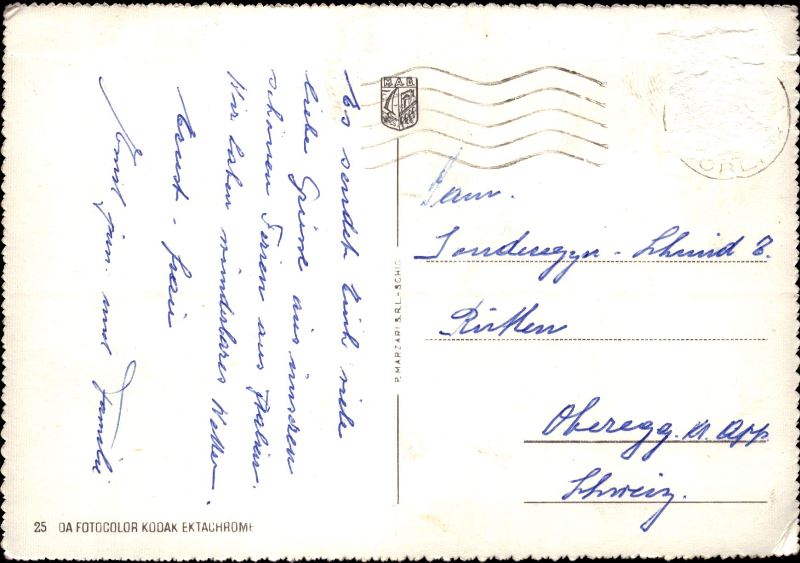 Es sendet Euch viele
liebe Grüsse aus unseren
schönen Ferien aus Italien.
Wir haben wunderbares Wetter.
Ernst - Frau
Emil jun. und Familie
MAR
P. MARZARI S.R.L.-SCHIO
Fam.
Sonderegger - Schmid z.
Rütten
Oberegg. Kt. App
Schweiz.
25 DA FOTOCOLOR KODAK EKTACHROME